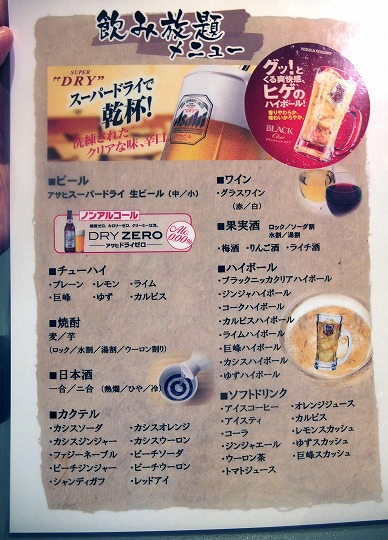 飲み放題
メニュー
SUPER
"DRY"
スーパードライで
乾杯!
洗練された
クリアな味、辛口。
NIKKA WHISKY
グッ!と
くる爽快感、
ヒゲの
ハイボール!
香りやわらか、
味わいかろやか。
BLACK
Clear
■ビール
アサヒスーパードライ 生ビール(中/小)
ノンアルコール
DRY ZERO
アサヒドライゼロ
Alc.
0.00%
■チューハイ
・プレーン ・レモン ・ライム
・巨峰 ・ゆず ・カルピス
■焼酎
麦/芋
(ロック/水割/湯割/ウーロン割り)
■日本酒
一合/二合 (熱燗/ひや/冷)
■カクテル
・カシスソーダ ・カシスオレンジ
・カシスジンジャー ・カシスウーロン
・ファジーネーブル ・ピーチソーダ
・ピーチジンジャー ・ピーチウーロン
・シャンディガフ ・レッドアイ
■ワイン
・グラスワイン
(赤/白)
■果実酒 ロック/ソーダ割
水割/湯割
・梅酒 ・りんご酒 ・ライチ酒
■ハイボール
・ブラックニッカクリアハイボール
・ジンジャハイボール
・コークハイボール
・カルピスハイボール
・ライムハイボール
・巨峰ハイボール
・カシスハイボール
・ゆずハイボール
■ソフトドリンク
・アイスコーヒー ・オレンジジュース
・アイスティ ・カルピス
・コーラ ・レモンスカッシュ
・ジンジャエール ・ゆずスカッシュ
・ウーロン茶 ・巨峰スカッシュ
・トマトジュース